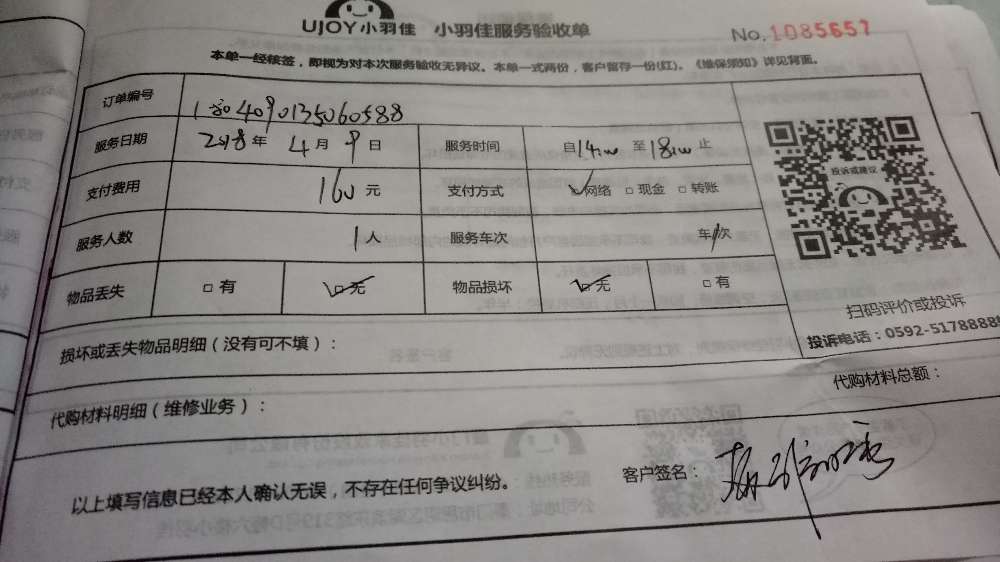 UJOY小羽佳 小羽佳服务验收单
No.1085657
本单一经核签，即视为对本次服务验收无异议。本单一式两份，客户留存一份(红)。《维保须知》详见背面。
订单编号
服务日期 2018年 4月 9日 服务时间 自14:00 至18:00 止
支付费用 160元 支付方式 ☑网络 □现金 □转账
服务人数 1人 服务车次 车/次
物品丢失 □有 ☑无 物品损坏 ☑无 □有
投诉或建议
扫码评价或投诉
投诉电话：0592-5178888
损坏或丢失物品明细（没有可不填）：
代购材料明细（维修业务）：
代购材料总额：
以上填写信息已经本人确认无误，不存在任何争议纠纷。
客户签名：